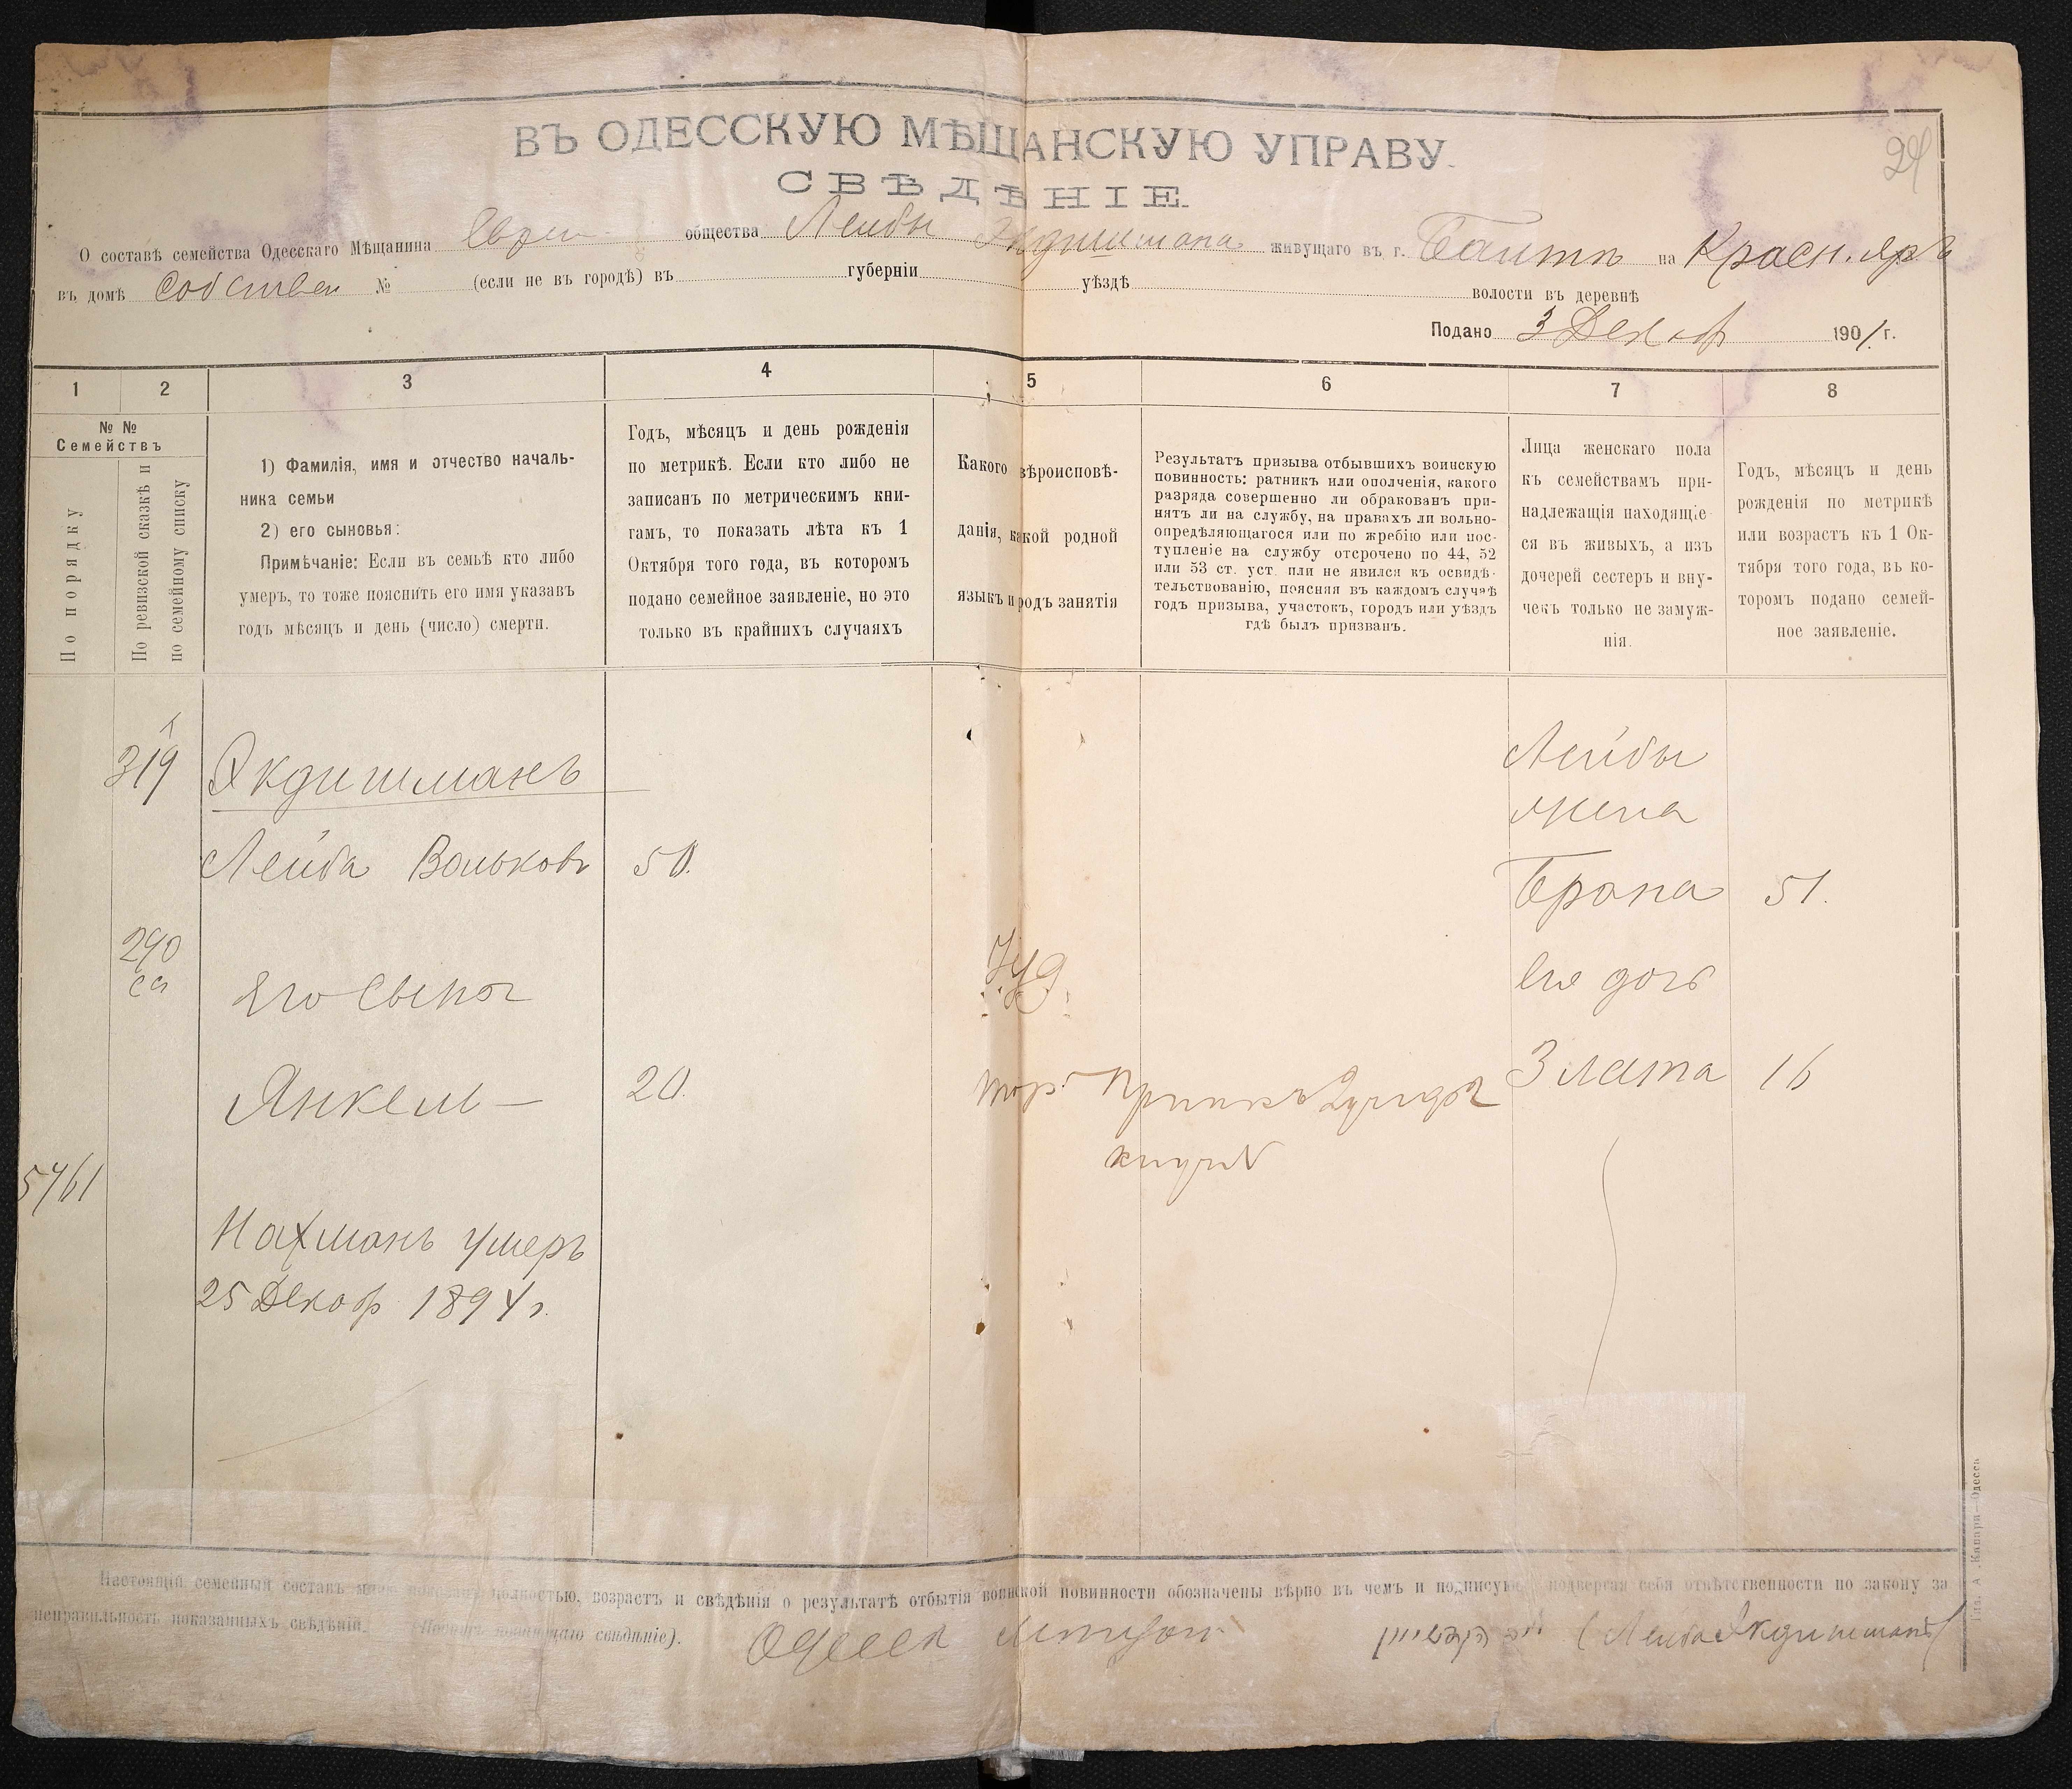 24
ВЪ ОДЕССКУЮ МѢЩАНСКУЮ УПРАВУ.
СВѢДѢНІЕ.
О составѣ семейства Одесскаго Мѣщанина Еврей общества Лейбы Якдишмана живущаго въ г. Балтѣ на Красн. яръ
въ домѣ собствен № (если не въ городѣ) въ губерніи уѣздѣ волости въ деревнѣ
Подано 3 Декабр 1901 г.
1 2 3 4 5 6 7 8
№ №
Семействъ
По порядку
По ревизской сказкѣ и
по семейному списку
1) Фамилія, имя и отчество началь-
ника семьи
2) его сыновья:
Примѣчаніе: Если въ семьѣ кто либо
умеръ, то тоже пояснить его имя указавъ
годъ мѣсяцъ и день (число) смерти.
Годъ, мѣсяцъ и день рожденія
по метрикѣ. Если кто либо не
записанъ по метрическимъ кни-
гамъ, то показать лѣта къ 1
Октября того года, въ которомъ
подано семейное заявленіе, но это
только въ крайнихъ случаяхъ
Какого вѣроисповѣ-
данія, какой родной
языкъ и родъ занятія
Результатъ призыва отбывшихъ воинскую
повинность: ратникъ или ополченія, какого
разряда совершенно ли обракованъ при-
нятъ ли на службу, на правахъ ли вольно-
опредѣляющагося или по жребію или пос-
тупленіе на службу отсрочено по 44, 52
или 53 ст. уст. или не явился къ освидѣ-
тельствованію, поясняя въ каждомъ случаѣ
годъ призыва, участокъ, городъ или уѣздъ
гдѣ былъ призванъ.
Лица женскаго пола
къ семействамъ при-
надлежащія находящіе-
ся въ живыхъ, а изъ
дочерей сестеръ и вну-
чекъ только не замуж-
нія.
Годъ, мѣсяцъ и день
рожденія по метрикѣ
или возрастъ къ 1 Ок-
тября того года, въ ко-
торомъ подано семей-
ное заявленіе.
319 Якдишманъ
Лейба Вольковъ 50.
290
Его сыновя
Янкель — 20.
5461
Нахманъ умеръ
25 Декабр 1894 г.
Іуд.
тор.
Лейбы
жена
Брана 51.
Его дочь
Злата 16
Настоящій семейный составъ мною показанъ полностью, возрастъ и свѣдѣнія о результатѣ отбытія воинской повинности обозначены вѣрно въ чемъ и подписуюсь подвергая себя отвѣтственности по закону за
неправильность показанныхъ свѣдѣній. (Подпись подающаго свѣдѣніе).
(Лейба Якдишманъ)
Тип. А. Канари—Одесса